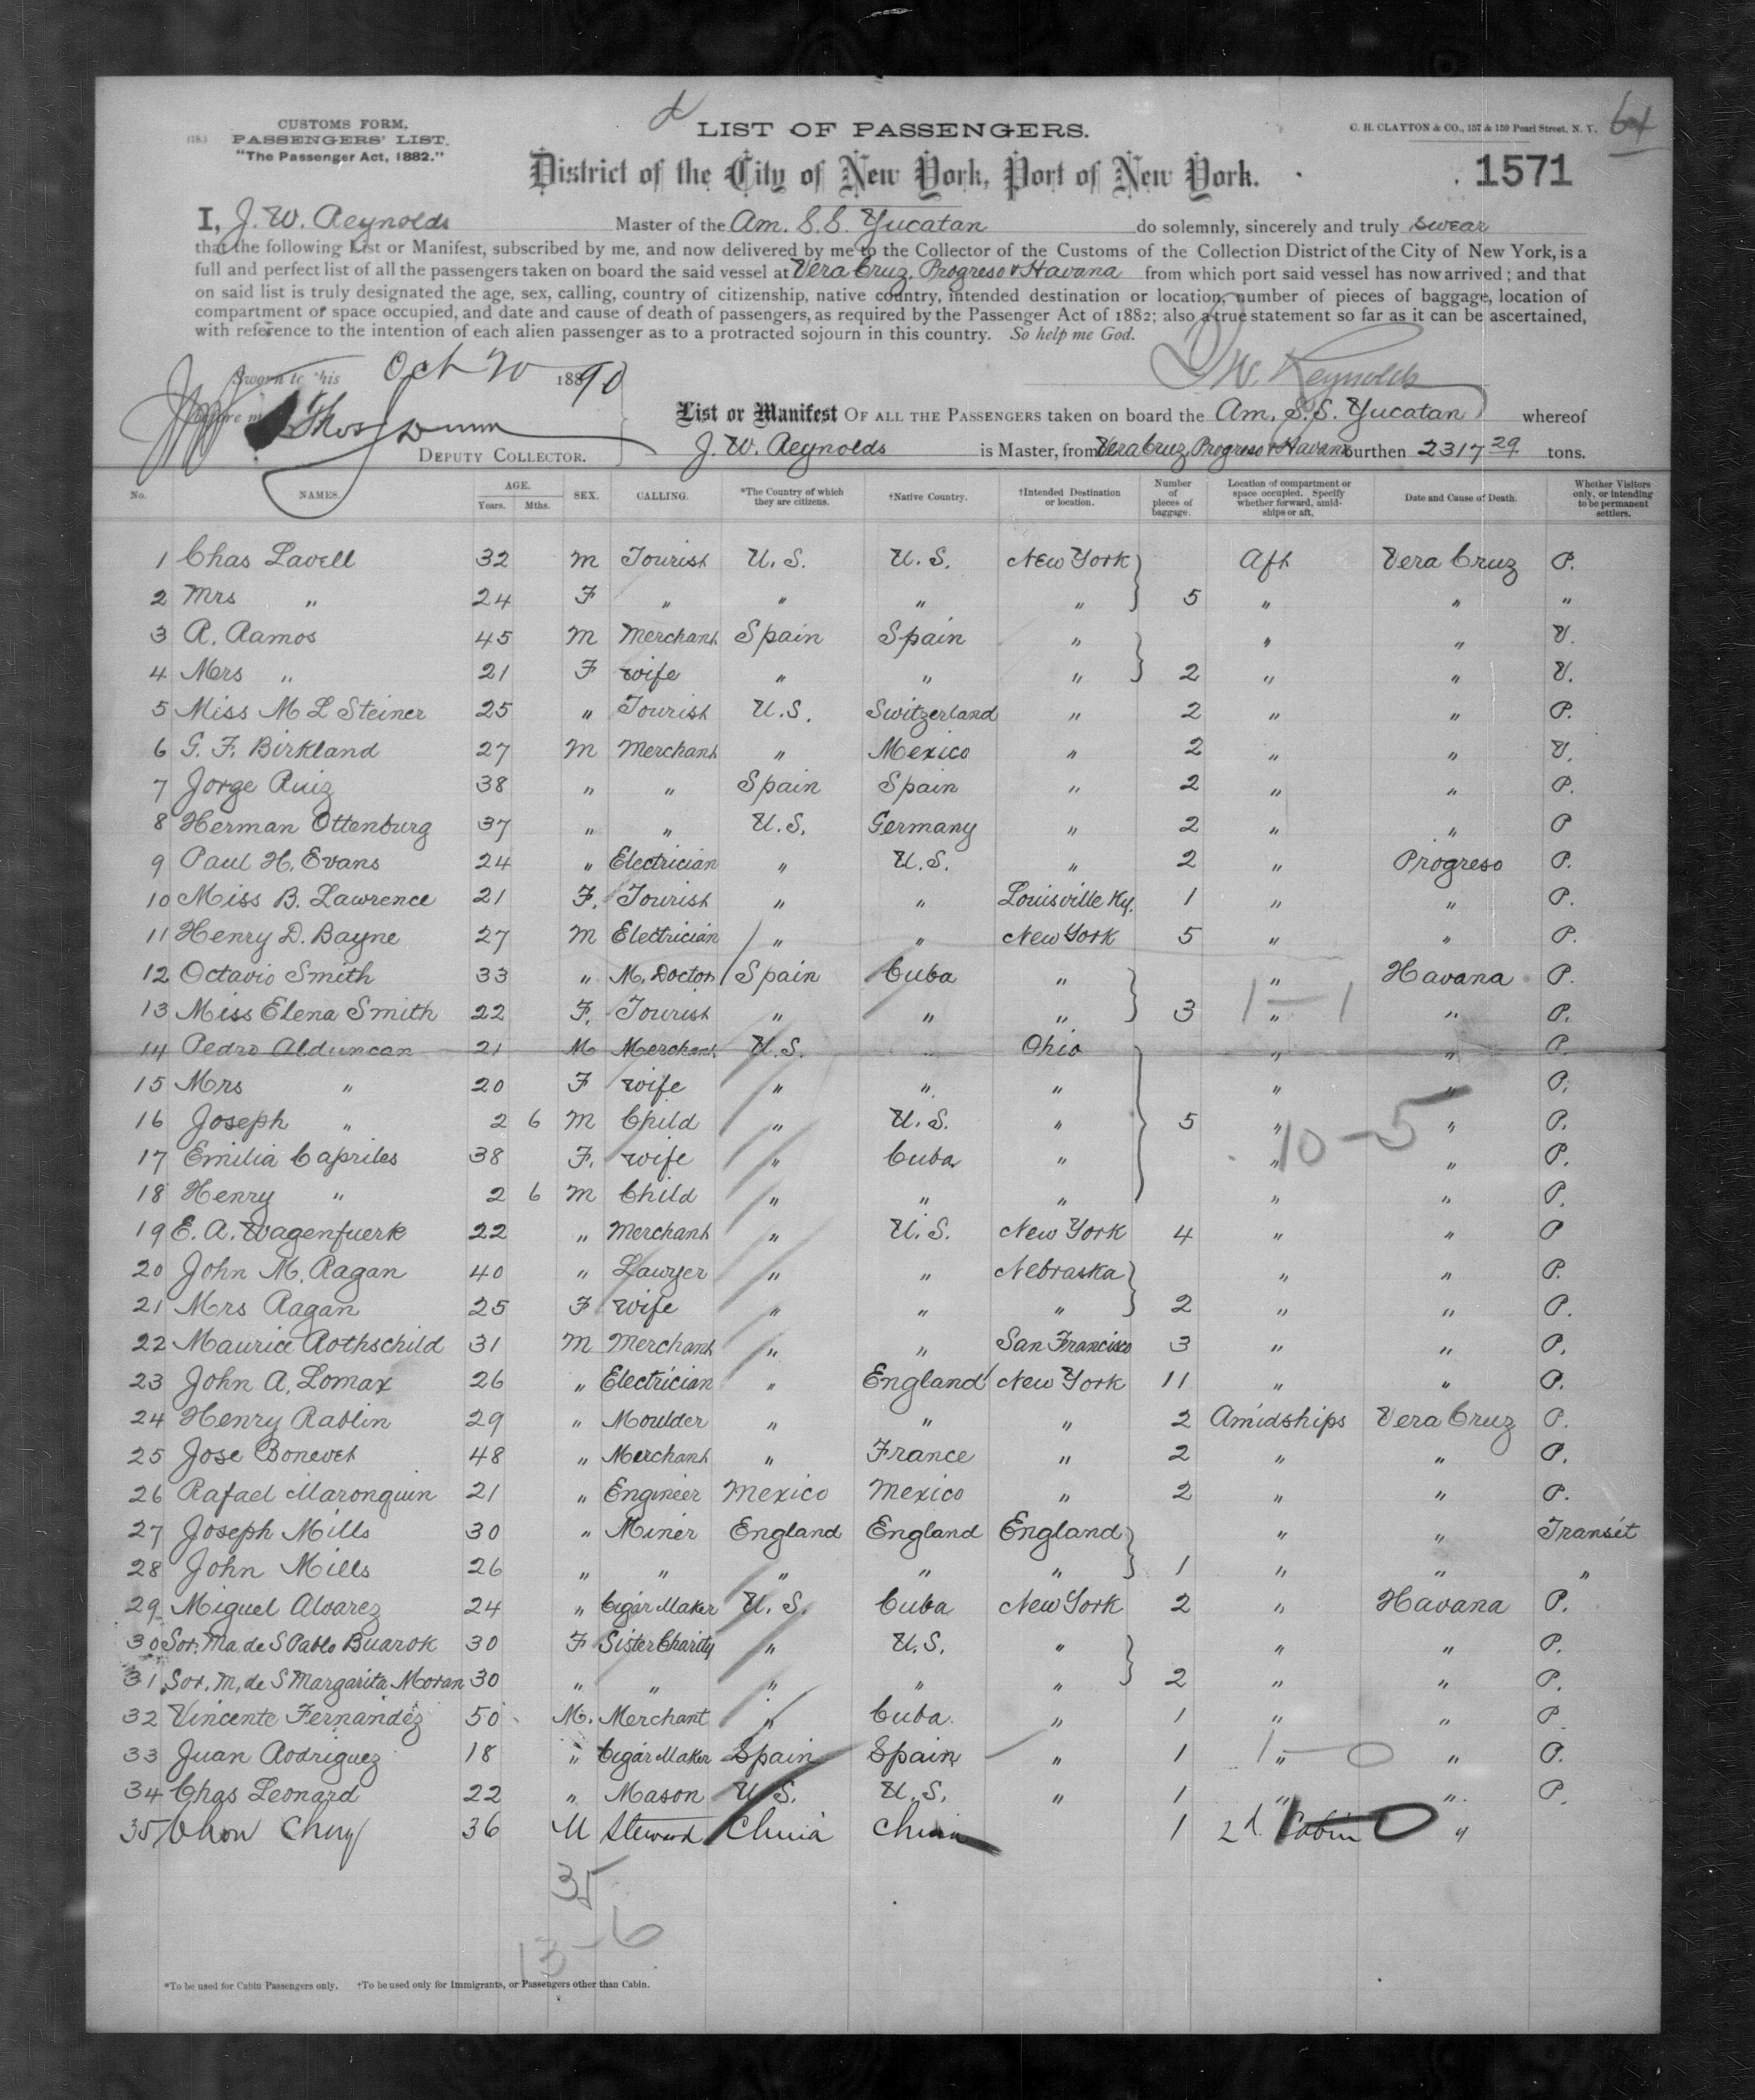 d
64
CUSTOMS FORM,
(18.) PASSENGERS' LIST.
"The Passenger Act, 1882."
LIST OF PASSENGERS.
C. H. CLAYTON & CO., 157 & 159 Pearl Street, N. Y.
District of the City of New York, Port of New York.
1571
I, J. W. Reynolds Master of the Am. S.S. Yucatan do solemnly, sincerely and truly swear
that the following List or Manifest, subscribed by me, and now delivered by me to the Collector of the Customs of the Collection District of the City of New York, is a
full and perfect list of all the passengers taken on board the said vessel at Vera Cruz, Progreso & Havana from which port said vessel has now arrived; and that
on said list is truly designated the age, sex, calling, country of citizenship, native country, intended destination or location, number of pieces of baggage, location of
compartment or space occupied, and date and cause of death of passengers, as required by the Passenger Act of 1882; also a true statement so far as it can be ascertained,
with reference to the intention of each alien passenger as to a protracted sojourn in this country. So help me God.
Sworn to this Oct 20 1890
J W. Reynolds
before me Thos Dunn
DEPUTY COLLECTOR.
List or Manifest OF ALL THE PASSENGERS taken on board the Am. S.S. Yucatan whereof
J. W. Reynolds is Master, from Vera Cruz, Progreso & Havana burthen 2317 29 tons.
No. NAMES. AGE. Years. Mths. SEX. CALLING. *The Country of which they are citizens. †Native Country. †Intended Destination or location. Number of pieces of baggage. Location of compartment or space occupied. Specify whether forward, amidships or aft. Date and Cause of Death. Whether Visitors only, or intending to be permanent settlers.
1 Chas Lavell 32 M Tourist U.S. U.S. New York Aft Vera Cruz P.
2 Mrs " 24 F " " " " 5 " " "
3 R. Ramos 45 M Merchant Spain Spain " " " V.
4 Mrs " 21 F wife " " " 2 " " V.
5 Miss M L Steiner 25 " Tourist U.S. Switzerland " 2 " " P.
6 G. F. Birkland 27 M Merchant " Mexico " 2 " " V.
7 Jorge Ruiz 38 " " Spain Spain " 2 " " P.
8 Herman Ottenburg 37 " " U.S. Germany " 2 " " P
9 Paul H. Evans 24 " Electrician " U.S. " 2 " Progreso P.
10 Miss B. Lawrence 21 F. Tourist " " Louisville Ky. 1 " " P.
11 Henry D. Bayne 27 M Electrician " " New York 5 " " P.
12 Octavio Smith 33 " M. Doctor Spain Cuba " " Havana P.
13 Miss Elena Smith 22 F. Tourist " " " 3 " " P.
1 - 1
14 Pedro Alduncan 21 M Merchant U.S. " Ohio " " P.
15 Mrs " 20 F wife " " " " " P.
16 Joseph " 2 6 M Child " U.S. " 5 " " P.
10 - 5
17 Emilia Capriles 38 F. wife " Cuba " " " P.
18 Henry " 2 6 M Child " " " " " P.
19 E. A. Wagenfuerk 22 " Merchant " U.S. New York 4 " " P
20 John M. Ragan 40 " Lawyer " " Nebraska " " P.
21 Mrs Ragan 25 F wife " " " 2 " " P.
22 Maurice Rothschild 31 M Merchant " " San Francisco 3 " " P.
23 John A. Lomax 26 " Electrician " England New York 11 " " P.
24 Henry Rablin 29 " Moulder " " " 2 Amidships Vera Cruz P.
25 Jose Bonevet 48 " Merchant " France " 2 " " P.
26 Rafael Maronquin 21 " Engineer Mexico Mexico " 2 " " P.
27 Joseph Mills 30 " Miner England England England " " Transit
28 John Mills 26 " " " " " 1 " " "
29 Miguel Alvarez 24 " Cigar Maker U.S. Cuba New York 2 " Havana P.
30 Sor. Ma. de S Pablo Buarok 30 F Sister Charity " U.S. " " " P.
31 Sor. M. de S Margarita Moran 30 " " " " " 2 " " P.
32 Vincente Fernandez 50 M. Merchant " Cuba " 1 " " P.
33 Juan Rodriguez 18 " Cigar Maker Spain Spain " 1 " " P.
1 - 0
34 Chas Leonard 22 " Mason U.S. U.S. " 1 " " P.
35 Chon Chuy 36 M Steward China China 1 2d. Cabin "
1 - 0
35
13 - 6
*To be used for Cabin Passengers only. †To be used only for Immigrants, or Passengers other than Cabin.